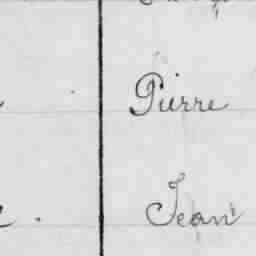 Pierre
Jean